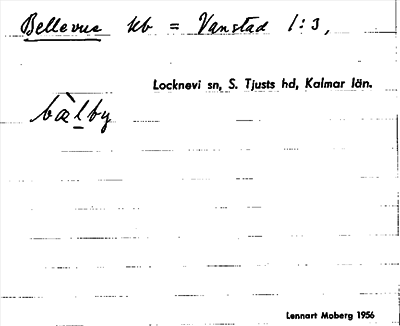 Bellevue hb = Vanstad 1:3,
Locknevi sn, S. Tjusts hd, Kalmar län.
bàlby
Lennart Moberg 1956